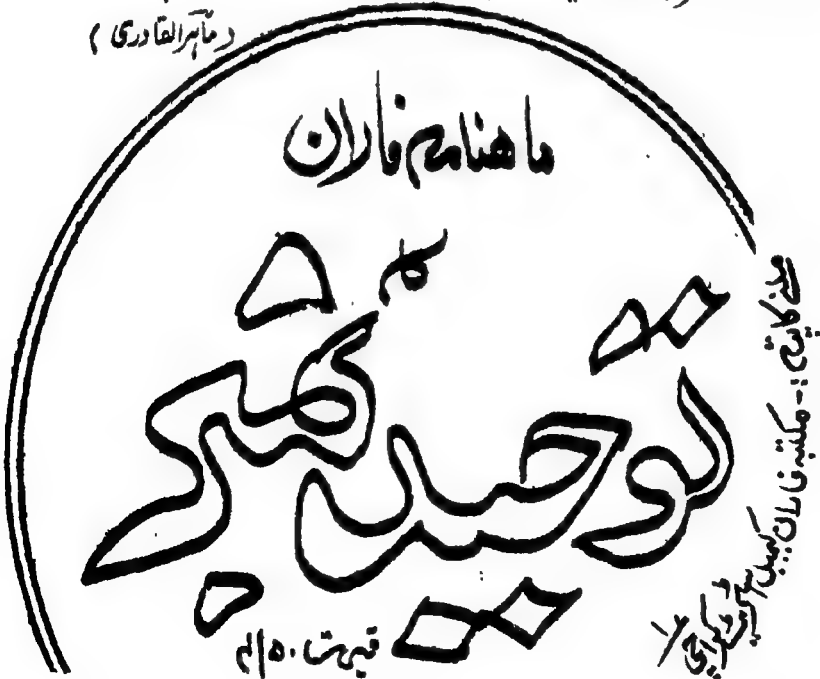 (ماہر القادری)
ماهنامہ فاران
توحید نمبر
ملنے کا پتہ :- مکتبہ فاران کیمبل اسٹریٹ کراچی ۱
قیمت